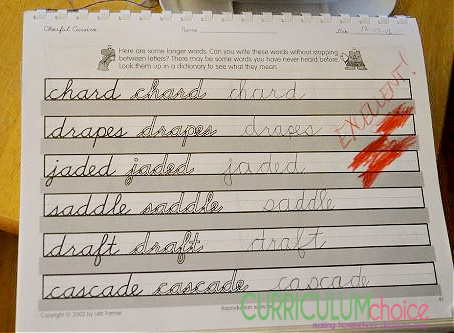 Cheerful Cursive Name Date 12-15-12
Here are some longer words. Can you write these words without stopping
between letters? There may be some words you have never heard before.
Look them up in a dictionary to see what they mean.
EXCELLENT!
chard chard chard
drapes drapes drapes
jaded jaded jaded
saddle saddle saddle
draft draft draft
cascade cascade cascade
Copyright © 2002 by Letz Farmer Reproduction
CURRICULUMchoice
making homeschool decisions